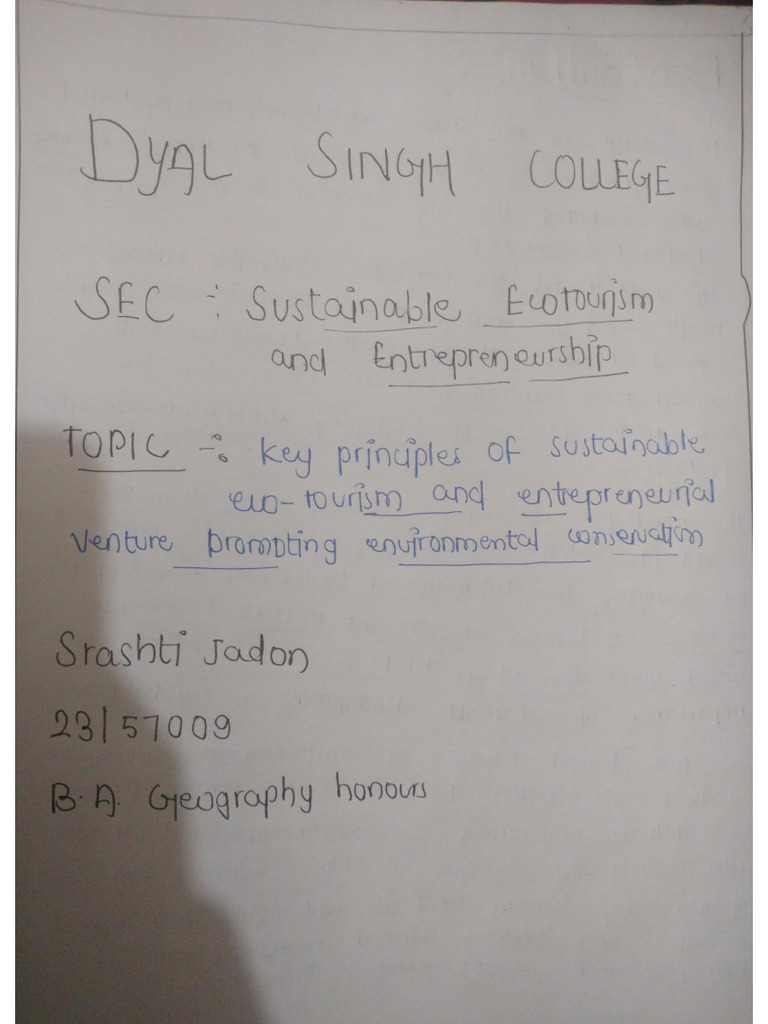 DYAL SINGH COLLEGE
SEC :- Sustainable Ecotourism
and Entrepreneurship
TOPIC -: Key principles of sustainable
eco-tourism and entrepreneurial
venture prompting environmental conservation
Srashti Jadon
23/57009
B.A. Geography honours